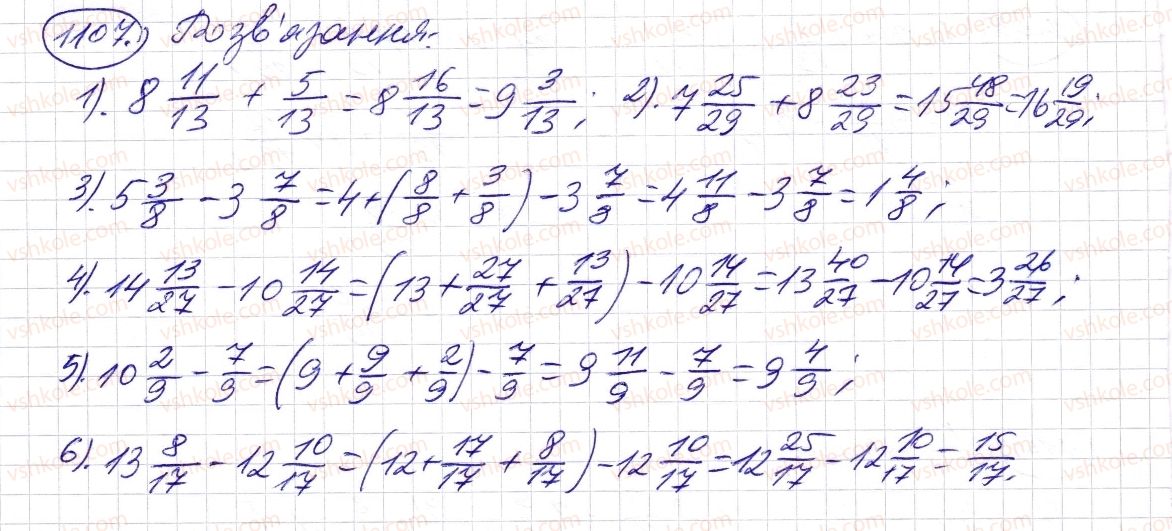 1107. Розв'язання:
1). 8 11/13 + 5/13 = 8 16/13 = 9 3/13; 2). 7 25/29 + 8 23/29 = 15 48/29 = 16 19/29;
3). 5 3/8 - 3 7/8 = 4 + (8/8 + 3/8) - 3 7/8 = 4 11/8 - 3 7/8 = 1 4/8;
4). 14 13/27 - 10 14/27 = (13 + 27/27 + 13/27) - 10 14/27 = 13 40/27 - 10 14/27 = 3 26/27;
5). 10 2/9 - 7/9 = (9 + 9/9 + 2/9) - 7/9 = 9 11/9 - 7/9 = 9 4/9;
6). 13 8/17 - 12 10/17 = (12 + 17/17 + 8/17) - 12 10/17 = 12 25/17 - 12 10/17 = 15/17.